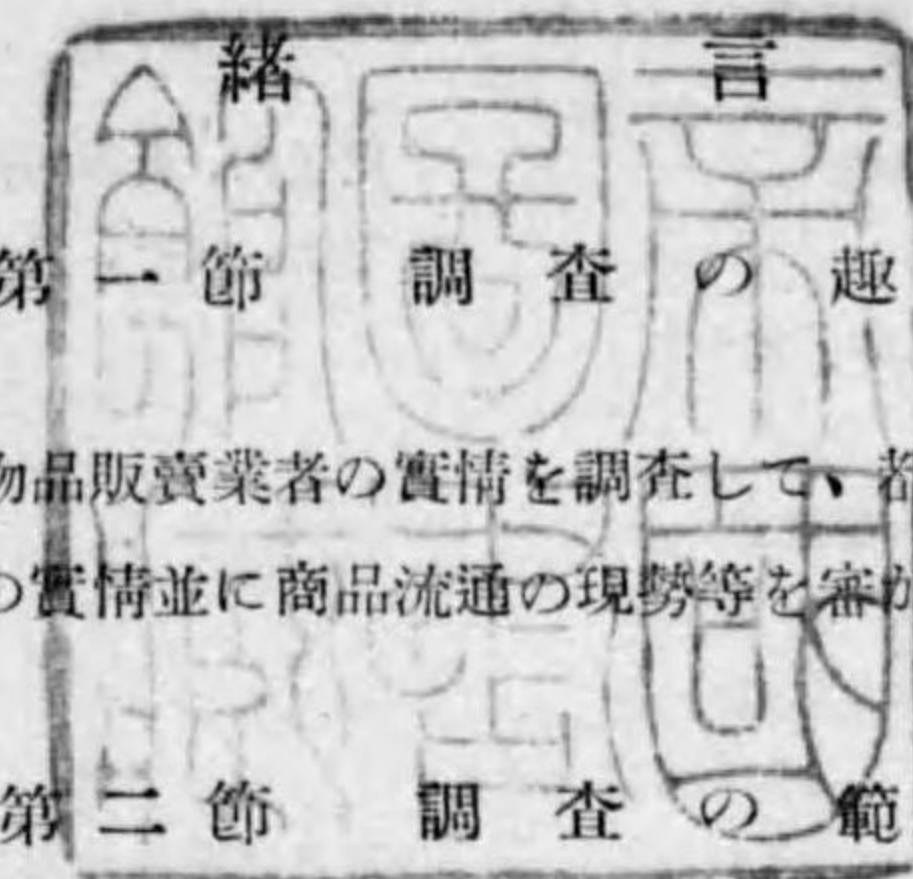 緒言
第一節 調査の趣
物品販賣業者の實情を調査して、都
の實情並に商品流通の現勢等を審か
第二節 調査の範